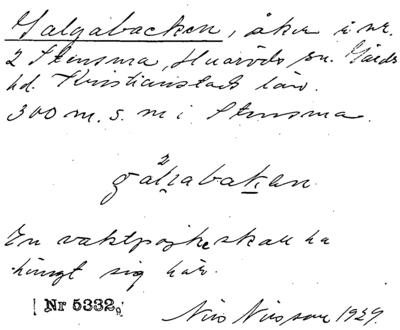 Galgabacken, åker i nr.
2 Stensma, Huaröds sn. Gärds
hd. Kristianstads län.
300 m. s. m i Stensma.
gálgabakan.
En vaktpojke skall ha
hängt sig här.
Nr 5332
Nils Nilsson 1929.